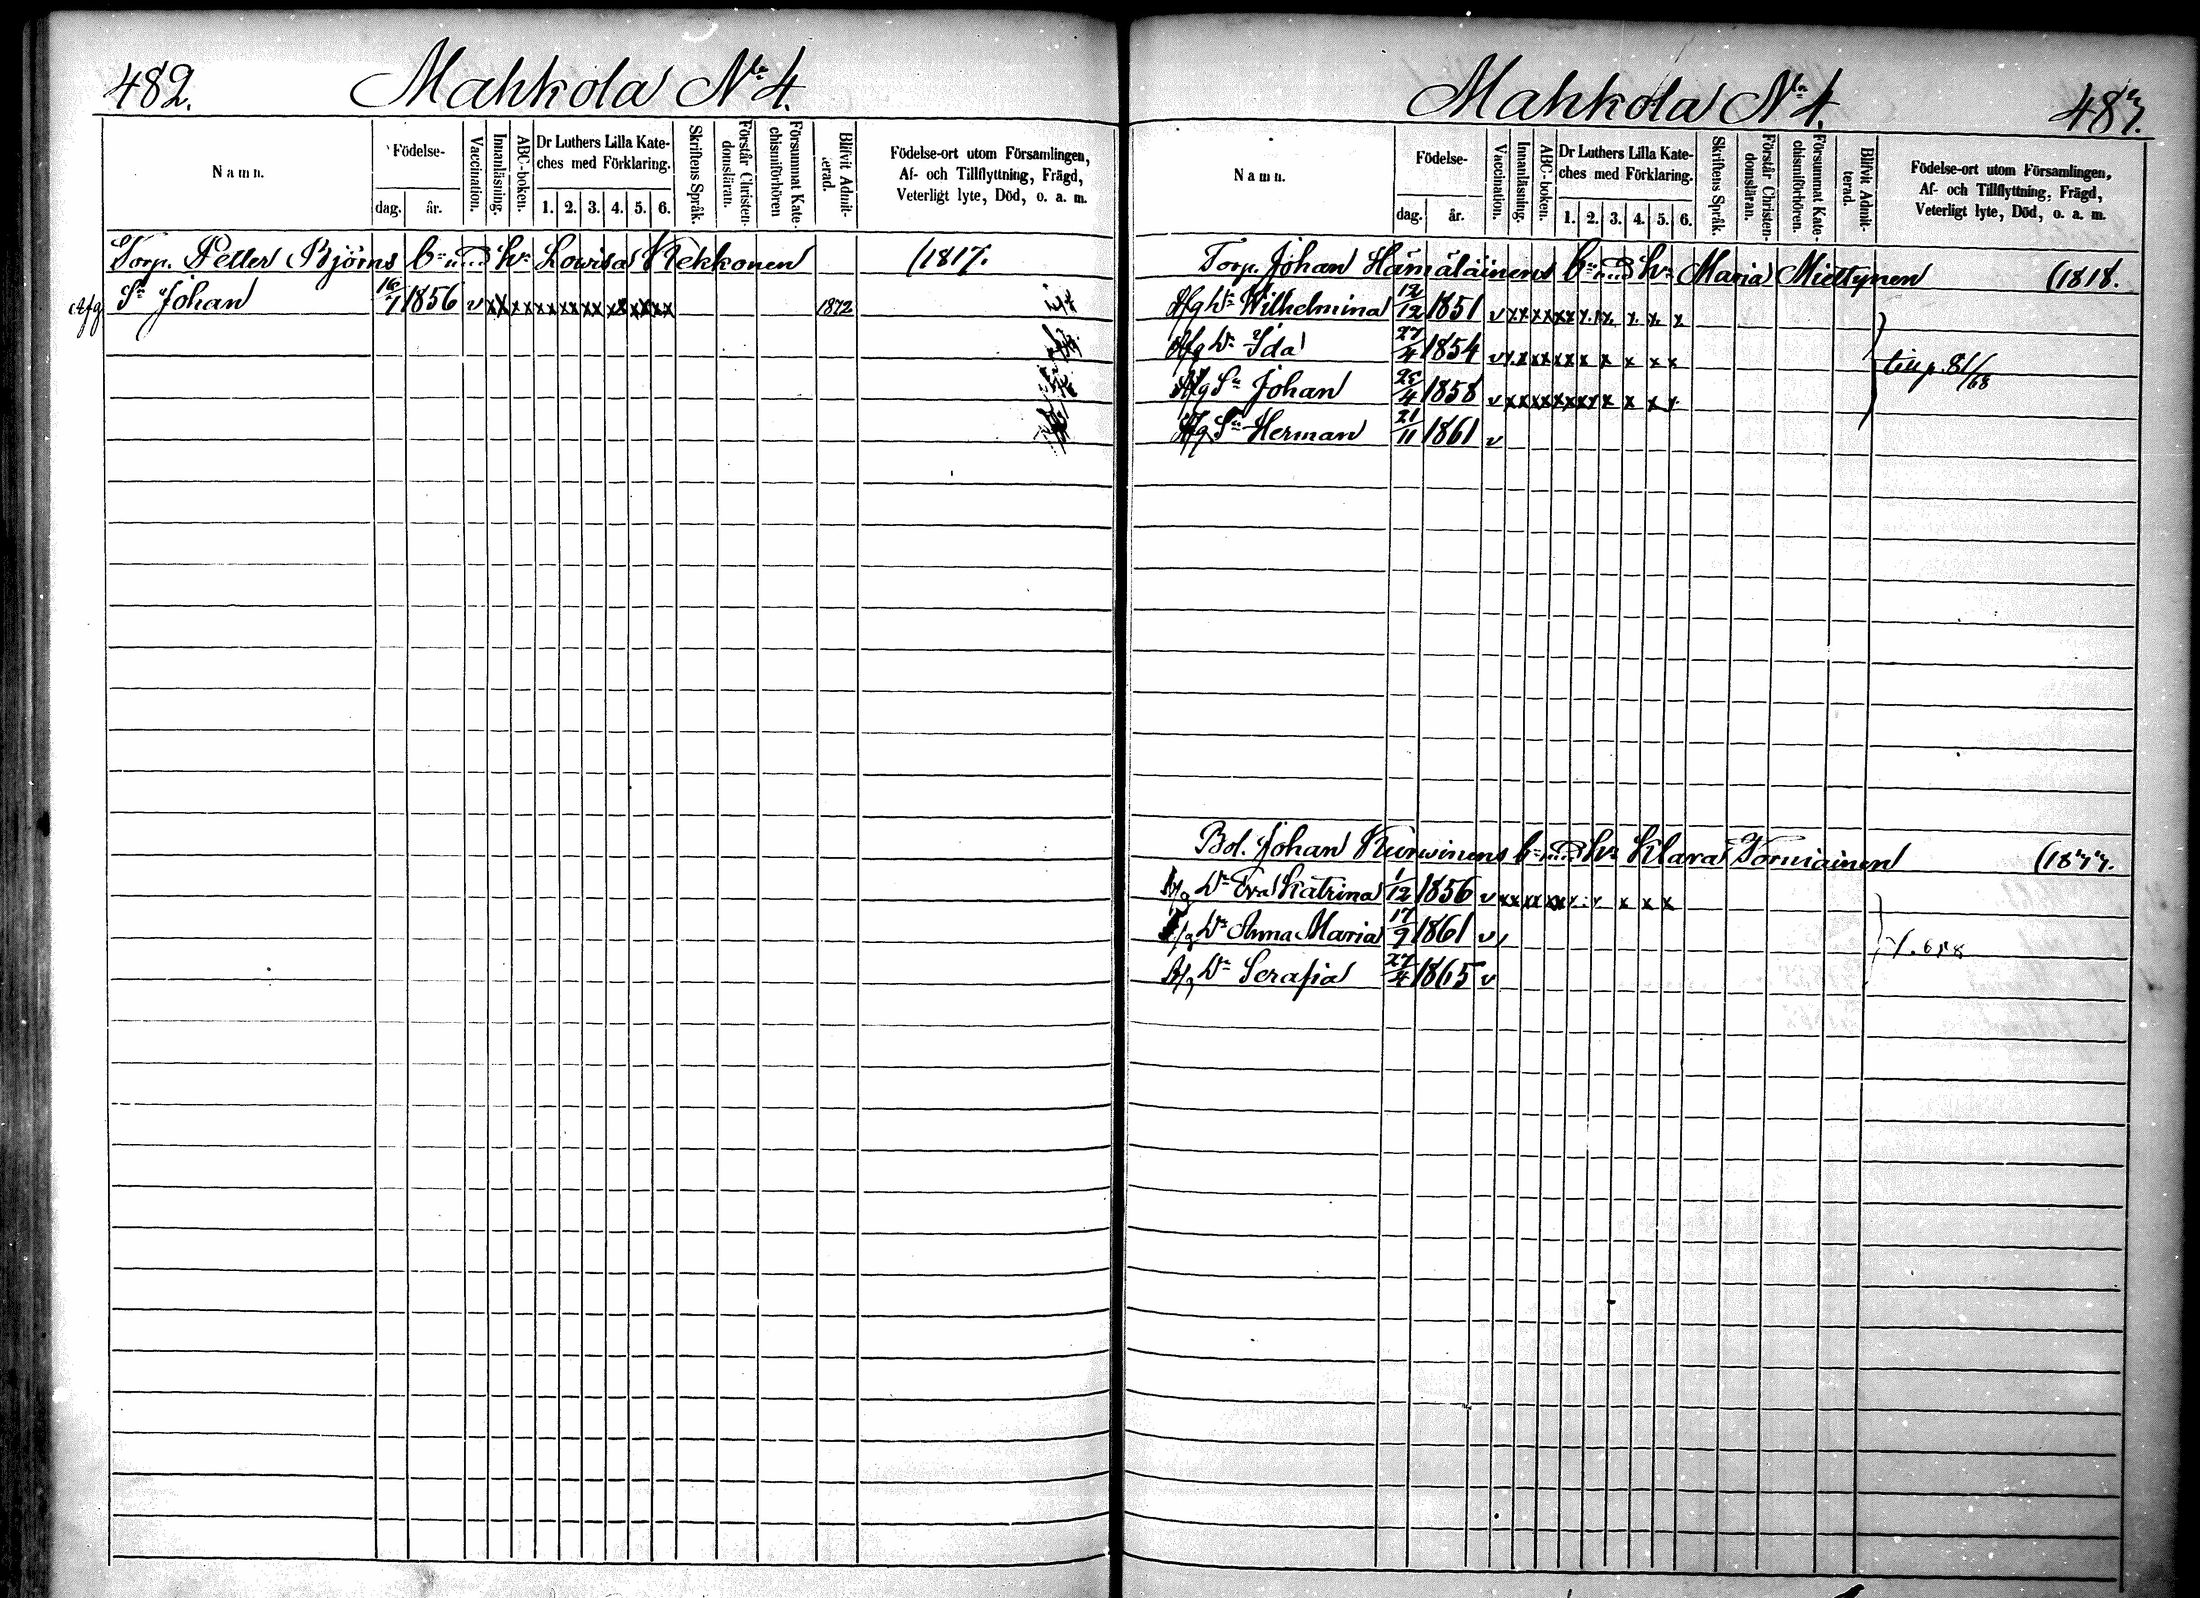 482. Mahkola No 4.
Namn. Födelse- dag. år. Vaccination. Innanläsning. ABC-boken. Dr Luthers Lilla Kateches med Förklaring. 1. 2. 3. 4. 5. 6. Skriftens Språk. Förstår Christendomsläran. Försummat Katechismiförhören Blifvit Admitterad. Födelse-ort utom Församlingen, Af- och Tillflyttning, Frägd, Veterligt lyte, Död, o. a. m.
Torp. Petter Björns bn med hu Lowisa Kekkonen (1817.
Afg. Sn Johan 16/7 1856 v xx xx xx xx xx xx xx xx 1872
Mahkola No 4. 483.
Namn. Födelse- dag. år. Vaccination. Innanläsning. ABC-boken. Dr Luthers Lilla Kateches med Förklaring. 1. 2. 3. 4. 5. 6. Skriftens Språk. Förstår Christendomsläran. Försummat Katechismiförhören. Blifvit Admitterad. Födelse-ort utom Församlingen, Af- och Tillflyttning, Frägd, Veterligt lyte, Död, o. a. m.
Torp. Johan Hämäläinens bn med hu Maria Miettynen (1818.
Afg Dr Wilhelmina 12/12 1851 v xx xx xx x x x x x
Afg Dr Ida 27/4 1854 v xx xx xx x x x x x till p. 81/68
Afg Sn Johan 1858 v xx xx xx xx x x x x
Afg Sn Herman 21/11 1861 v
Bol. Johan Kurwinens bn med hu Klara Torniainen (1833.
Afg Dr Eva Katrina 1/12 1856 v xx xx xx x x x x x
Afg Dr Anna Maria 17/9 1861 v
Afg Dr Serafia 27/4 1865 v